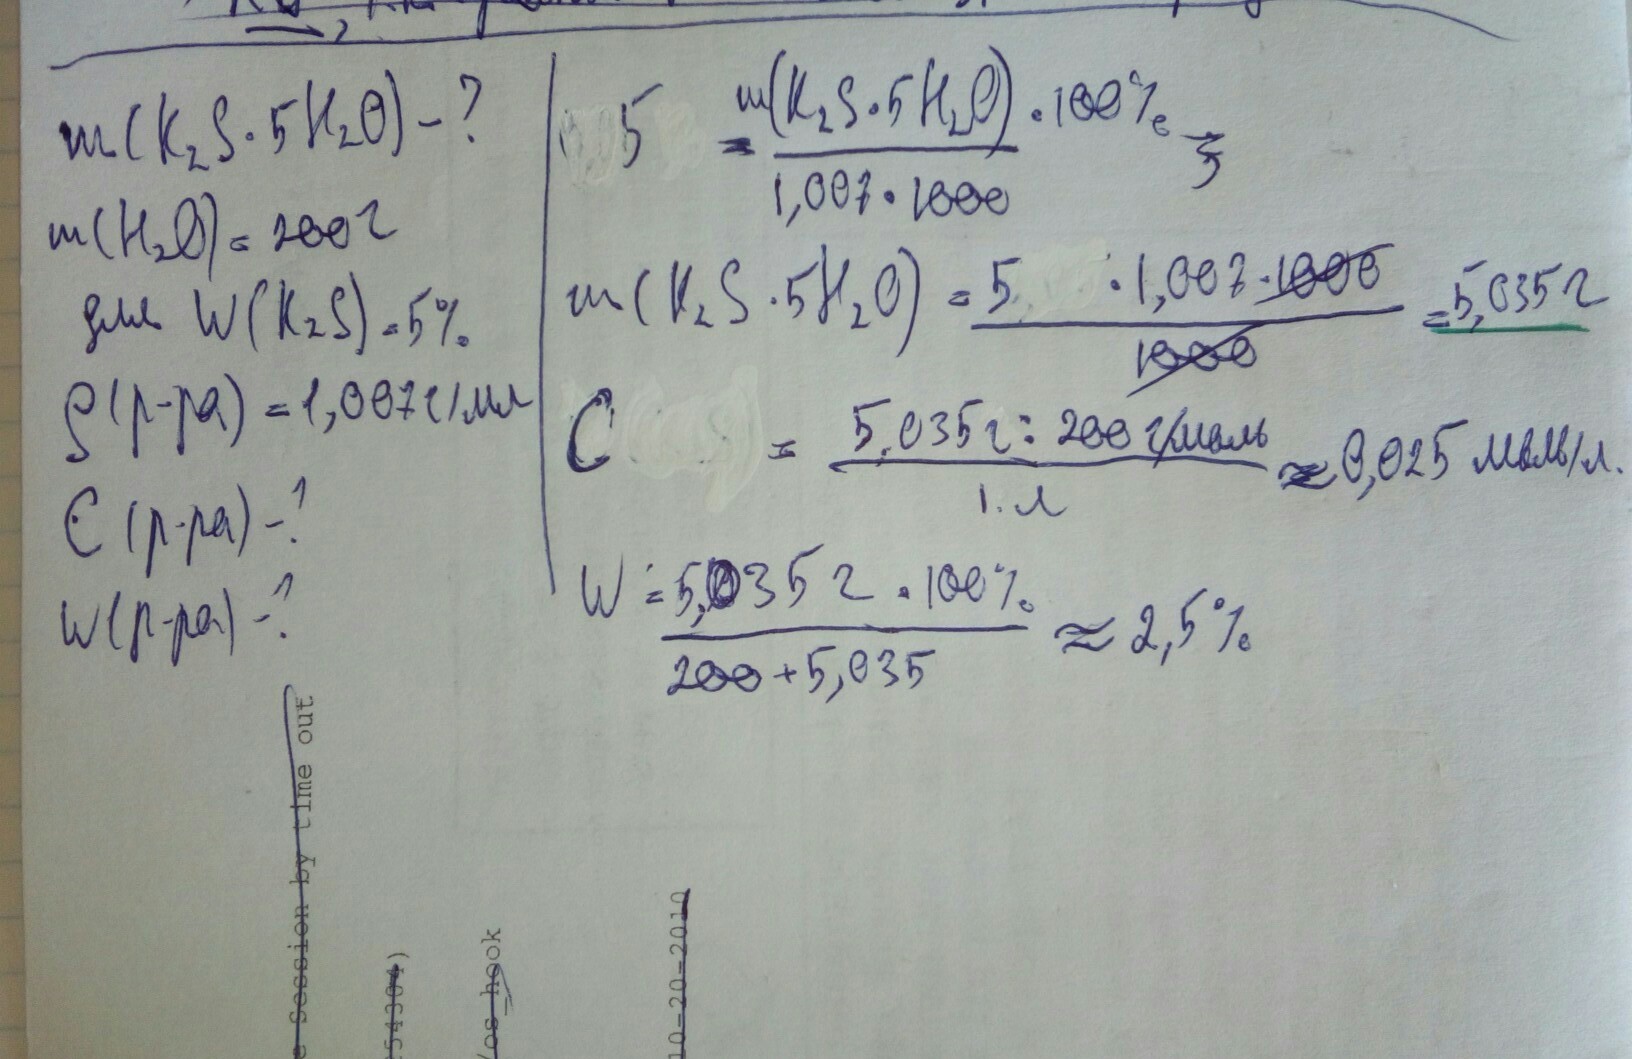 m(K₂S·5H₂O) - ?
m(H₂O) = 200г
для W(K₂S) = 5%
ρ(р-ра) = 1,007г/мл
C (р-ра) - ?
W(р-ра) - ?
5 = m(K₂S·5H₂O) · 100% / 1,007 · 1000
m(K₂S·5H₂O) = 5 · 1,007 · 1000 / 1000 = 5,035г
C = 5,035г : 200 г/моль / 1 л ≈ 0,025 моль/л.
W = 5,035 г · 100% / 200 + 5,035 ≈ 2,5%
e Session by time out
54304)
/os_hook
10-20-2010